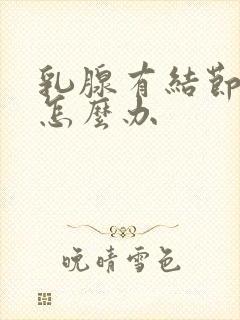 乳腺有結節
怎麼办
晚晴雪色